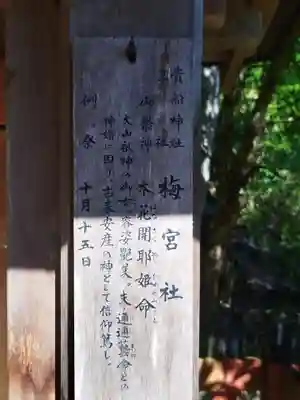 貴船神社
末社 梅宮社
御祭神 木花開耶姫命
大山祇神の御女、容姿艶美。夫、瓊瓊藝命との
神婚に因り、古来安産の神として信仰篤し。
例祭 十月十五日